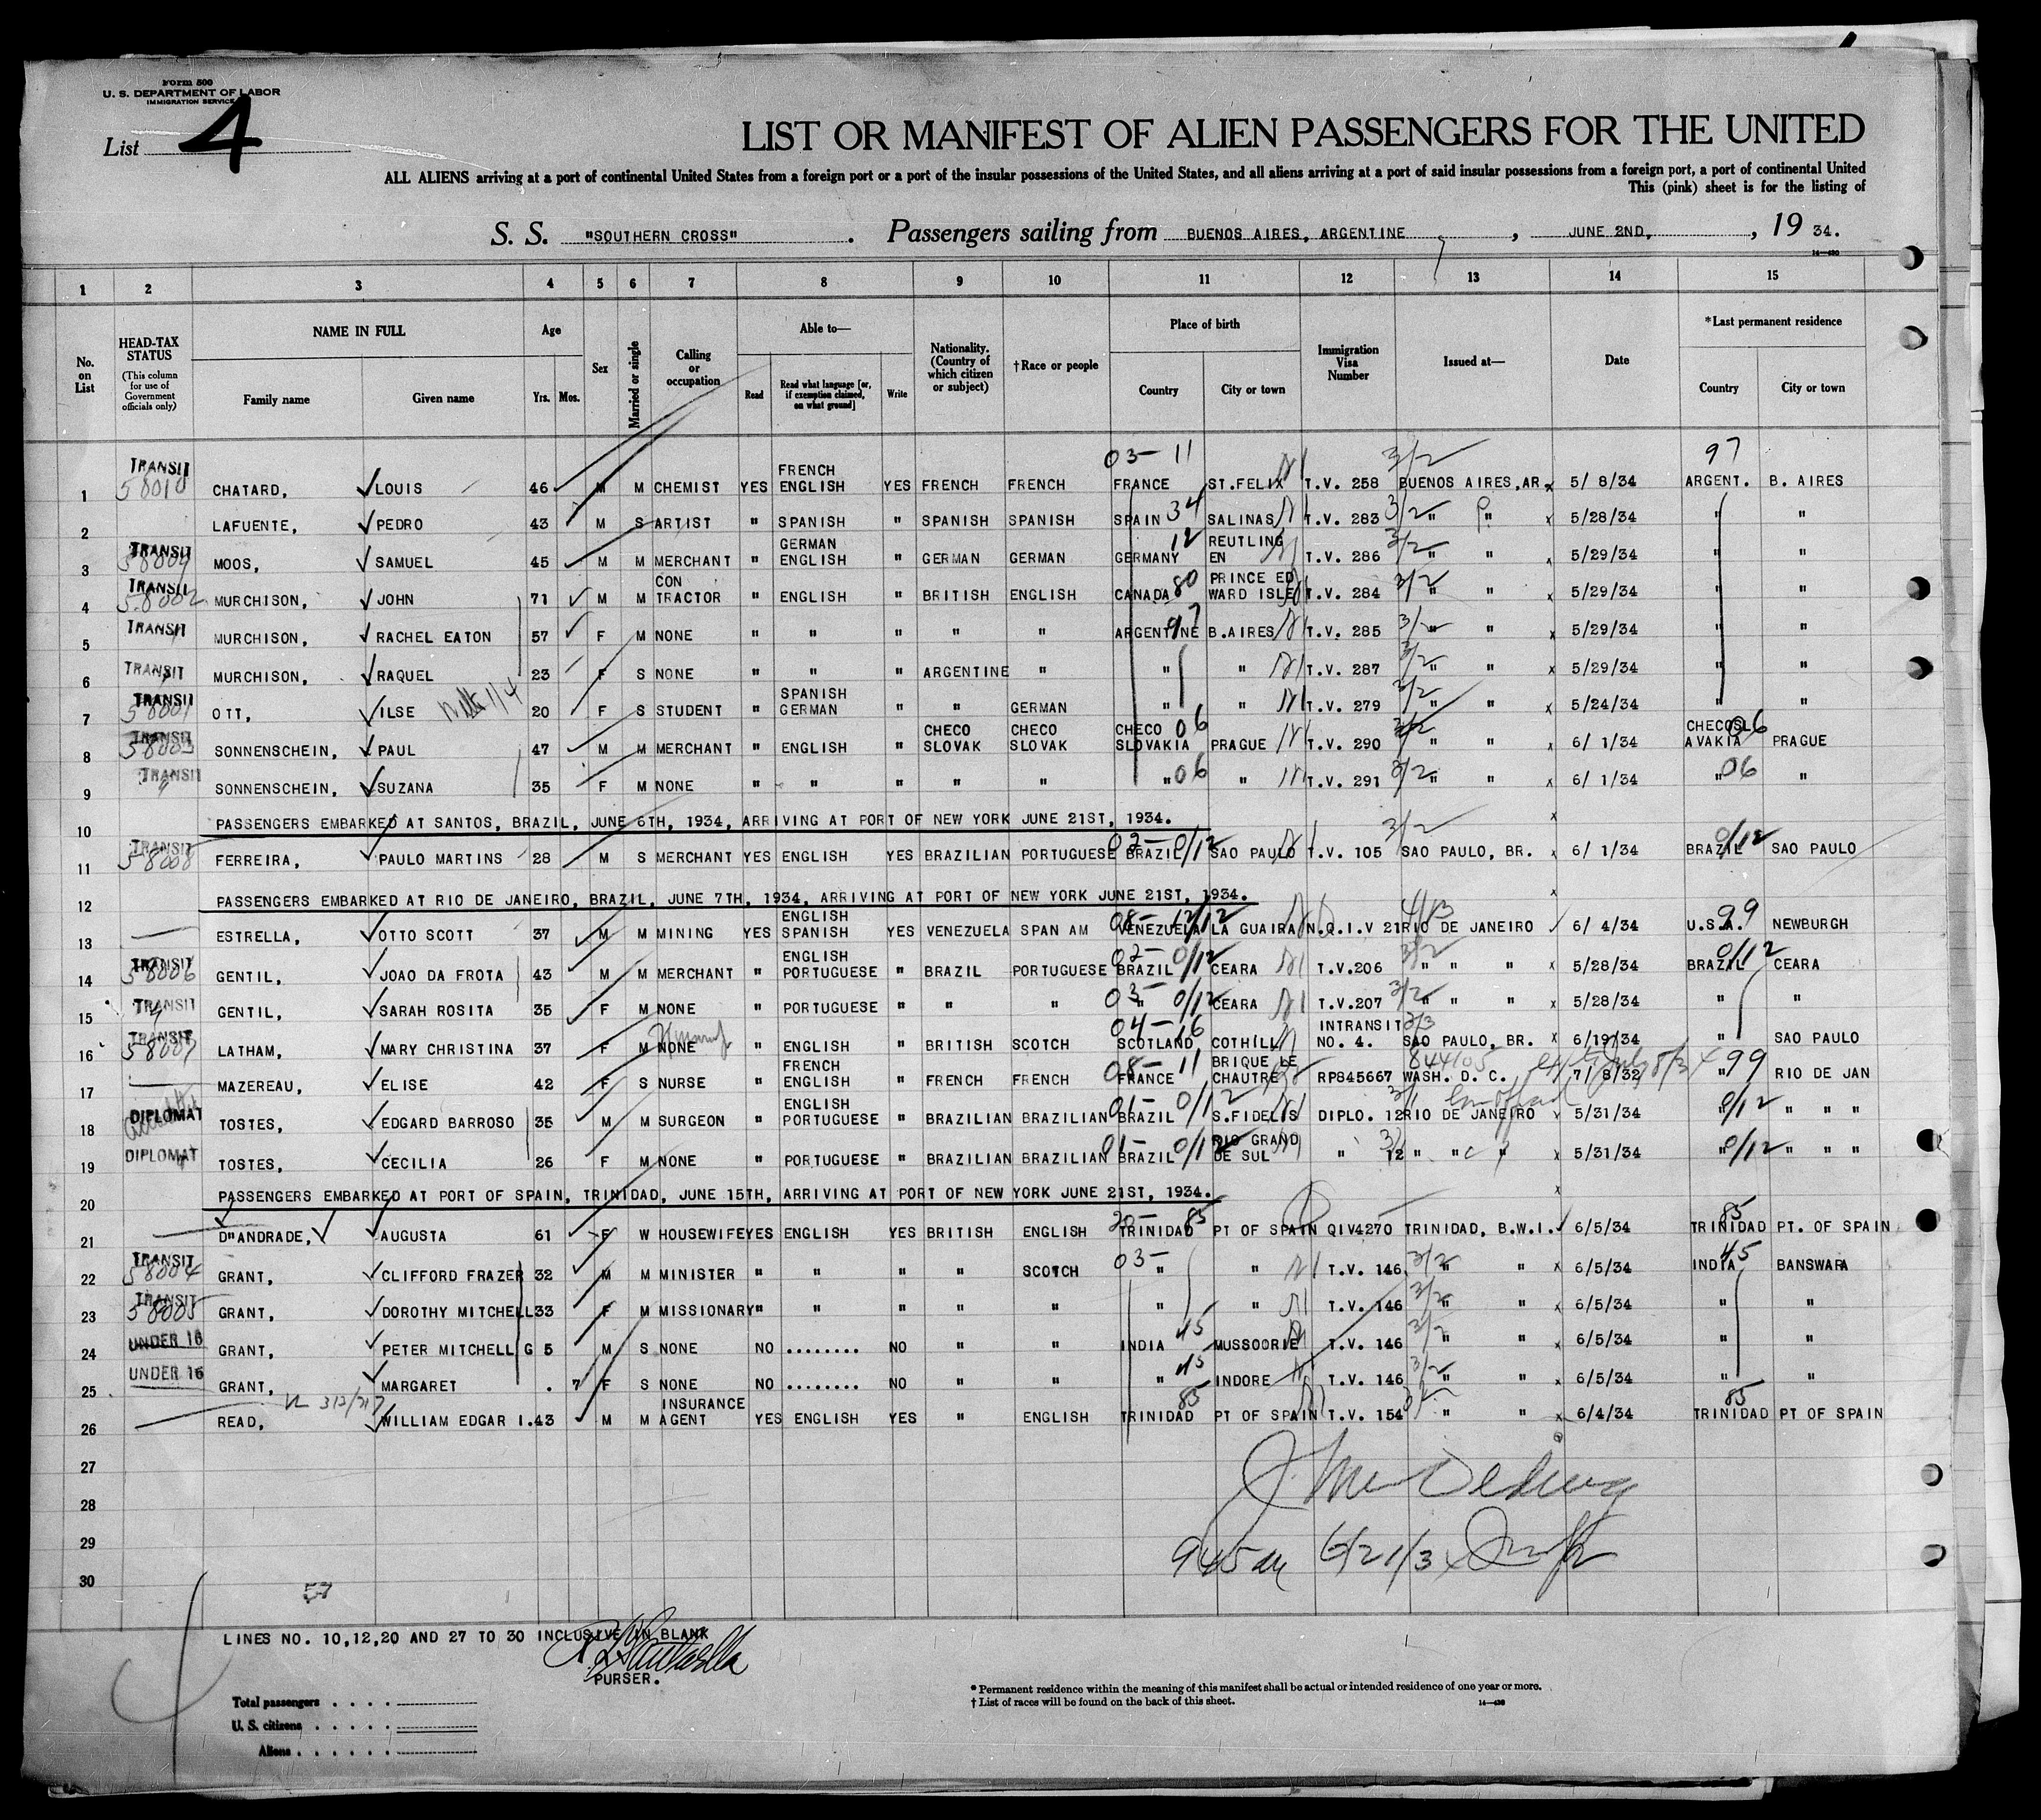 Form 500
U. S. DEPARTMENT OF LABOR
IMMIGRATION SERVICE
List 4
LIST OR MANIFEST OF ALIEN PASSENGERS FOR THE UNITED
ALL ALIENS arriving at a port of continental United States from a foreign port or a port of the insular possessions of the United States, and all aliens arriving at a port of said insular possessions from a foreign port, a port of continental United
This (pink) sheet is for the listing of
S. S. "SOUTHERN CROSS". Passengers sailing from BUENOS AIRES, ARGENTINE, JUNE 2ND, 19 34.
14—430
1 2 3 4 5 6 7 8 9 10 11 12 13 14 15
No. on List
HEAD-TAX STATUS (This column for use of Government officials only)
NAME IN FULL
Family name Given name
Age
Yrs. Mos.
Sex
Married or single
Calling or occupation
Able to—
Read Read what language [or, if exemption claimed, on what ground] Write
Nationality. (Country of which citizen or subject)
†Race or people
Place of birth
Country City or town
Immigration Visa Number
Issued at—
Date
*Last permanent residence
Country City or town
03-11 3/2 97
1 TRANSIT 58010 CHATARD, LOUIS 46 M M CHEMIST YES FRENCH ENGLISH YES FRENCH FRENCH FRANCE ST.FELIX T.V. 258 BUENOS AIRES,AR. 5/ 8/34 ARGENT. B. AIRES
2 LAFUENTE, PEDRO 43 M S ARTIST " SPANISH " SPANISH SPANISH SPAIN 34 SALINAS T.V. 283 3/2 " " 5/28/34 " "
3 TRANSIT 58009 MOOS, SAMUEL 45 M M MERCHANT " GERMAN ENGLISH " GERMAN GERMAN GERMANY 12 REUTLING EN T.V. 286 3/2 " " 5/29/34 " "
4 TRANSIT 58002 MURCHISON, JOHN 71 M M CON TRACTOR " ENGLISH " BRITISH ENGLISH CANADA 80 PRINCE ED WARD ISLE T.V. 284 3/2 " " 5/29/34 " "
5 TRANSIT MURCHISON, RACHEL EATON 57 F M NONE " " " " " ARGENTINE 97 B.AIRES T.V. 285 3/2 " " 5/29/34 " "
6 TRANSIT " MURCHISON, RAQUEL 23 F S NONE " " " ARGENTINE " " " T.V. 287 3/2 " " 5/29/34 " "
7 TRANSIT 58001 OTT, ILSE 20 F S STUDENT " SPANISH GERMAN " " GERMAN " " T.V. 279 3/2 " " 5/24/34 " "
8 TRANSIT 58003 SONNENSCHEIN, PAUL 47 M M MERCHANT " ENGLISH " CHECO SLOVAK CHECO SLOVAK CHECO SLOVAKIA 06 PRAGUE T.V. 290 3/2 " " 6/ 1/34 CHECOSL AVAKIA 06 PRAGUE
9 TRANSIT " SONNENSCHEIN, SUZANA 35 F M NONE " " " " " " 06 " T.V. 291 3/2 " " 6/ 1/34 " 06 "
10 PASSENGERS EMBARKED AT SANTOS, BRAZIL, JUNE 6TH, 1934, ARRIVING AT PORT OF NEW YORK JUNE 21ST, 1934.
11 TRANSIT 58008 FERREIRA, PAULO MARTINS 28 M S MERCHANT YES ENGLISH YES BRAZILIAN PORTUGUESE BRAZIL 02-0/12 SAO PAULO T.V. 105 3/2 SAO PAULO, BR. 6/ 1/34 BRAZIL 0/12 SAO PAULO
12 PASSENGERS EMBARKED AT RIO DE JANEIRO, BRAZIL, JUNE 7TH, 1934, ARRIVING AT PORT OF NEW YORK JUNE 21ST, 1934.
13 ESTRELLA, OTTO SCOTT 37 M M MINING YES ENGLISH SPANISH YES VENEZUELA SPAN AM VENEZUELA 08-12/12 LA GUAIRA N.Q.I.V 21 4/13 RIO DE JANEIRO 6/ 4/34 U.S.A. 99 NEWBURGH
14 TRANSIT 58006 GENTIL, JOAO DA FROTA 43 M M MERCHANT " ENGLISH PORTUGUESE " BRAZIL PORTUGUESE BRAZIL 02-0/12 CEARA T.V.206 3/2 " " " 5/28/34 BRAZIL 0/12 CEARA
15 TRANSIT " GENTIL, SARAH ROSITA 35 F M NONE " PORTUGUESE " " " " 03-0/12 CEARA T.V.207 3/2 " " " 5/28/34 " "
16 TRANSIT 58007 LATHAM, MARY CHRISTINA 37 F M NONE " ENGLISH " BRITISH SCOTCH SCOTLAND 04-16 COTHILL INTRANSIT NO. 4. 2/3 SAO PAULO, BR. 6/19/34 " SAO PAULO
17 MAZEREAU, ELISE 42 F S NURSE " FRENCH ENGLISH " FRENCH FRENCH FRANCE 08-11 BRIQUE LE CHAUTRE RP845667 844105 WASH. D. C. 7/ 8/32 " 99 RIO DE JAN
18 DIPLOMAT TOSTES, EDGARD BARROSO 35 M M SURGEON " ENGLISH PORTUGUESE " BRAZILIAN BRAZILIAN BRAZIL 01-0/12 S.FIDELIS DIPLO. 12 3/1 RIO DE JANEIRO 5/31/34 " 0/12 " " "
19 DIPLOMAT " TOSTES, CECILIA 26 F M NONE " PORTUGUESE " BRAZILIAN BRAZILIAN BRAZIL 01-0/12 RIO GRAND DE SUL " 12 3/1 " " " 5/31/34 " 0/12 " " "
20 PASSENGERS EMBARKED AT PORT OF SPAIN, TRINIDAD, JUNE 15TH, ARRIVING AT PORT OF NEW YORK JUNE 21ST, 1934.
21 D"ANDRADE, AUGUSTA 61 F W HOUSEWIFE YES ENGLISH YES BRITISH ENGLISH TRINIDAD 20-85 PT OF SPAIN QIV4270 TRINIDAD, B.W.I. 6/5/34 TRINIDAD 85 PT. OF SPAIN
22 TRANSIT 58004 GRANT, CLIFFORD FRAZER 32 M M MINISTER " " " " SCOTCH 03- " " T.V. 146 3/2 " " 6/5/34 INDIA 45 BANSWARA
23 TRANSIT 58005 GRANT, DOROTHY MITCHELL 33 F M MISSIONARY " " " " " " " T.V. 146 3/2 " " 6/5/34 " "
24 UNDER 16 GRANT, PETER MITCHELL G 5 M S NONE NO ........ NO " " INDIA 45 MUSSOORIE T.V. 146 3/2 " " 6/5/34 " "
25 UNDER 16 GRANT, MARGARET . 7 F S NONE NO ........ NO " " " 45 INDORE T.V. 146 3/2 " " 6/5/34 " "
26 READ, WILLIAM EDGAR I. 43 M M INSURANCE AGENT YES ENGLISH YES " ENGLISH TRINIDAD 85 PT OF SPAIN T.V. 154 " " 6/4/34 TRINIDAD 85 PT OF SPAIN
27
28
29
945 am 6/21/34
30
LINES NO. 10,12,20 AND 27 TO 30 INCLUSIVE IN BLANK
PURSER.
Total passengers . . . .
U. S. citizens . . . . .
Aliens . . . . . .
* Permanent residence within the meaning of this manifest shall be actual or intended residence of one year or more.
† List of races will be found on the back of this sheet.
14—430